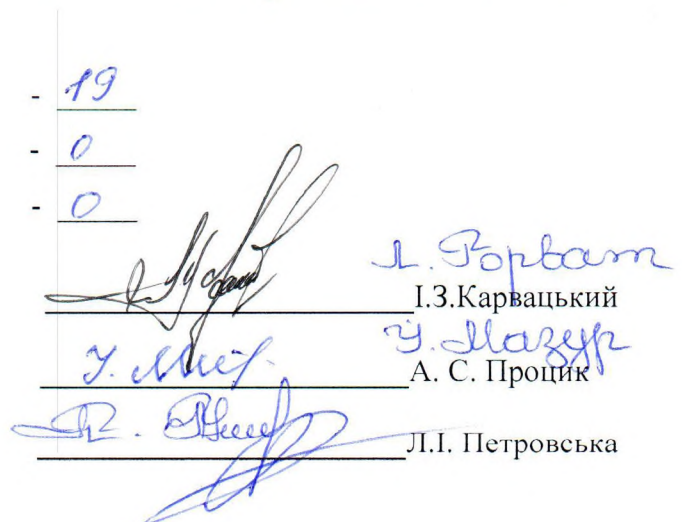 - 19
- 0
- 0
Л. Горват
І.З.Карвацький
У. Мазур
А. С. Процик
Л.І. Петровська